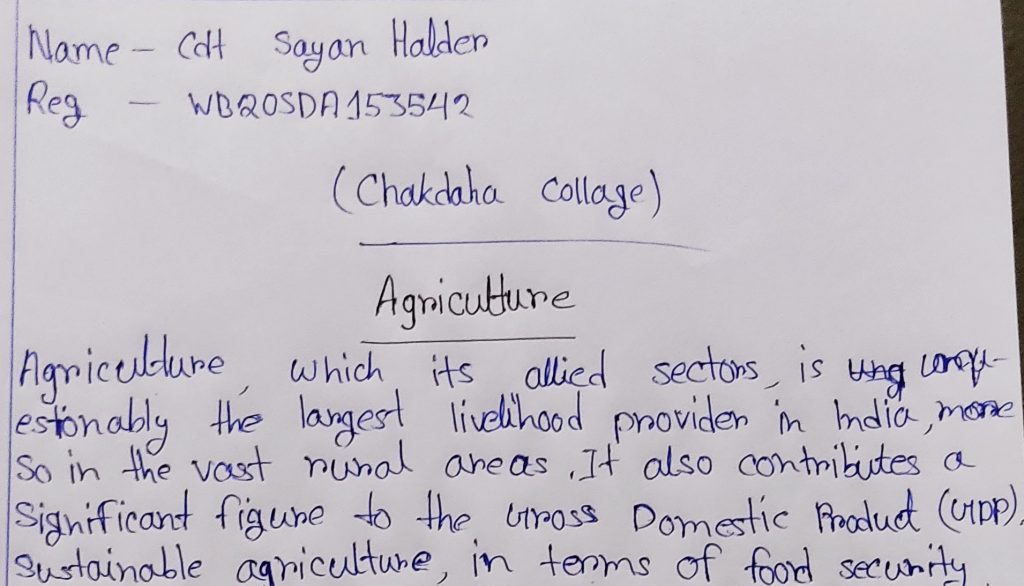 Name - Cdt Sayan Halder
Reg - WB20SDA153542
(Chakdaha Collage)
Agriculture
Agriculture, which its allied sectors, is
estionably the largest livelihood provider in India, more
So in the vast rural areas, It also contributes a
Significant figure to the Gross Domestic Product (GDP).
Sustainable agriculture, in terms of food security